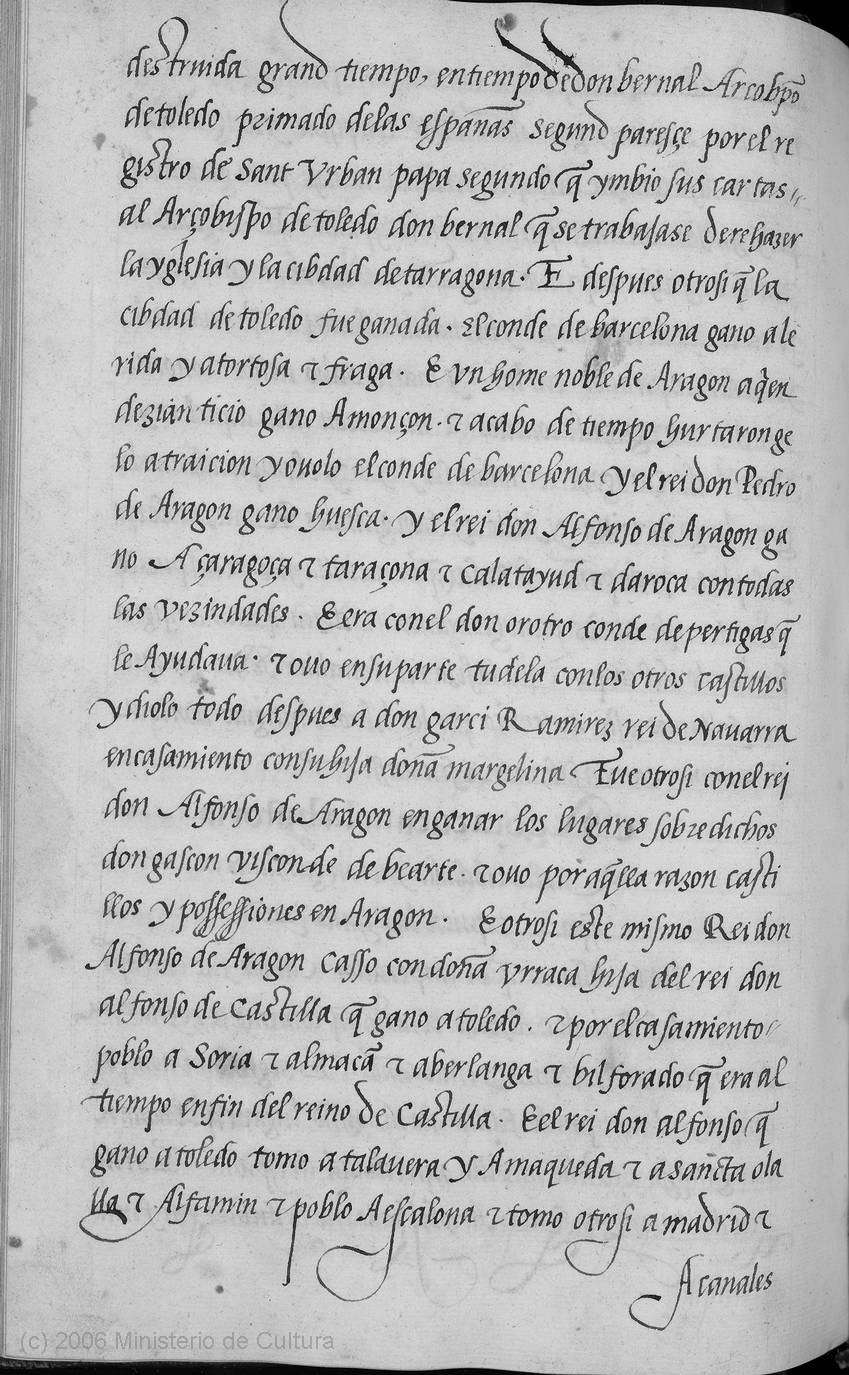 destruida grand tiempo, entiempo de don bernal Arcobpo
de toledo primado delas españas segund paresçe por el re
gistro de Sant Vrban papa segundo q̃ ymbio sus cartas
al Arçobispo de toledo don bernal q̃ se trabajase de rehazer
la yglesia y la cibdad de tarragona. E despues otrosi q̃ la
cibdad de toledo fue ganada. El conde de barcelona gano a le
rida y a tortosa τ fraga. E vn home noble de Aragon a q̃en
dezian ticio gano Amonçon. τ acabo de tiempo hurtaronge
lo a traicion y ouolo el conde de barcelona y el rei don Pedro
de Aragon gano huesca. y el rei don Alfonso de Aragon ga
no Açaragoça τ taraçona τ calatayud τ daroca con todas
las vezindades. E era con el don orotro conde de pertigas q̃
le Ayudaua. τ ouo en su parte tudela con los otros castillos
y diolo todo despues a don garci Ramirez rei de Nauarra
en casamiento con su hija doña margelina Fue otrosi con el rei
don Alfonso de Aragon en ganar los lugares sobredichos
don gascon visconde de bearte. τ ouo por aq̃lla razon casti
llos y possessiones en Aragon. E otrosi este mismo Rei don
Alfonso de Aragon Casso con doña vrraca hija del rei don
alfonso de Castilla q̃ gano a toledo. τ por el casamiento
poblo a Soria τ almaçã τ a berlanga τ bilforado q̃ era al
tiempo en fin del reino de Castilla. E el rei don alfonso q̃
gano a toledo tomo a talauera y Amaqueda τ a sancta ola
lla τ Alfamin τ poblo Aescalona τ tomo otrosi a madrid τ
Acanales
(c) 2006 Ministerio de Cultura